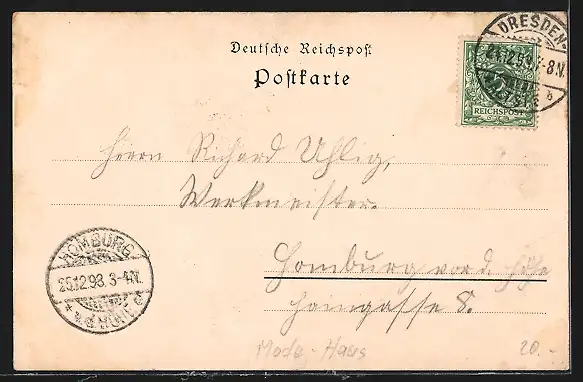 Deutsche Reichspost
Postkarte
DRESDEN
24.12.93. 7-8N.
REICHSPOST
Herrn Richard Uhlig,
Werkmeister.
Homburg vor d. Höhe
Haingasse 8.
HOMBURG
25.12.93. 3-4N.
Mode-Haus
20.-